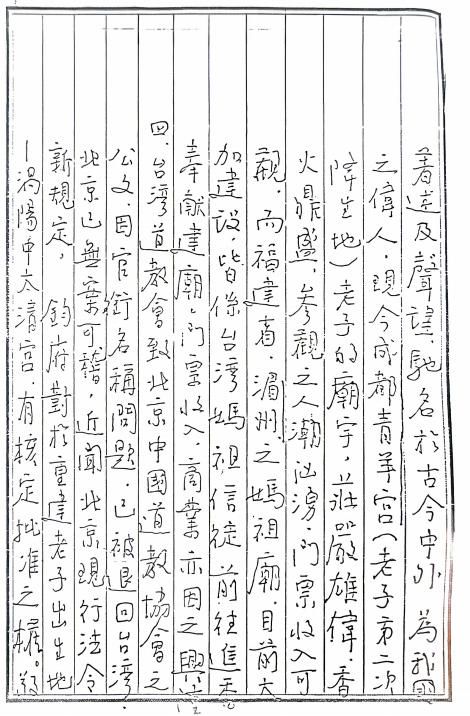 著述及聲望,馳名於古今中外,為我國
之偉人,現今成都青羊宮(老子第二次
降生地)老子的廟宇,莊嚴雄偉,香
火鼎盛,參觀之人潮汹湧,門票收入可
觀,而福建省,湄州之媽祖廟,目前大
加建設,皆係台湾媽祖信徒前往進香
奉獻建廟,門票收入,商業亦因之興
四、台湾道教會致北京中國道教協會之
公文,因官銜名稱問題,已被退回台湾,
北京已無案可稽,近聞北京現行法令
新規定,鈞府對於重建老子出生地
-渦陽中太清宮,有核定批准之權。敬